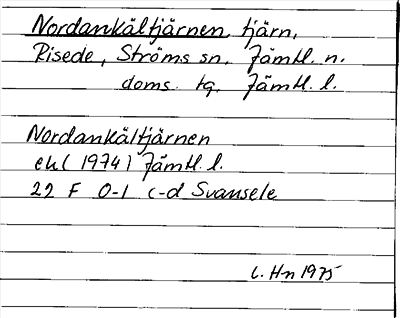 Nordankältjärnen, tjärn,
Risede, Ströms sn. Jämtl. n.
doms. tg. Jämtl. l.
Nordankältjärnen
ek (1974) Jämtl. l.
22 F 0-1 c-d Svansele
C. Hn 1975